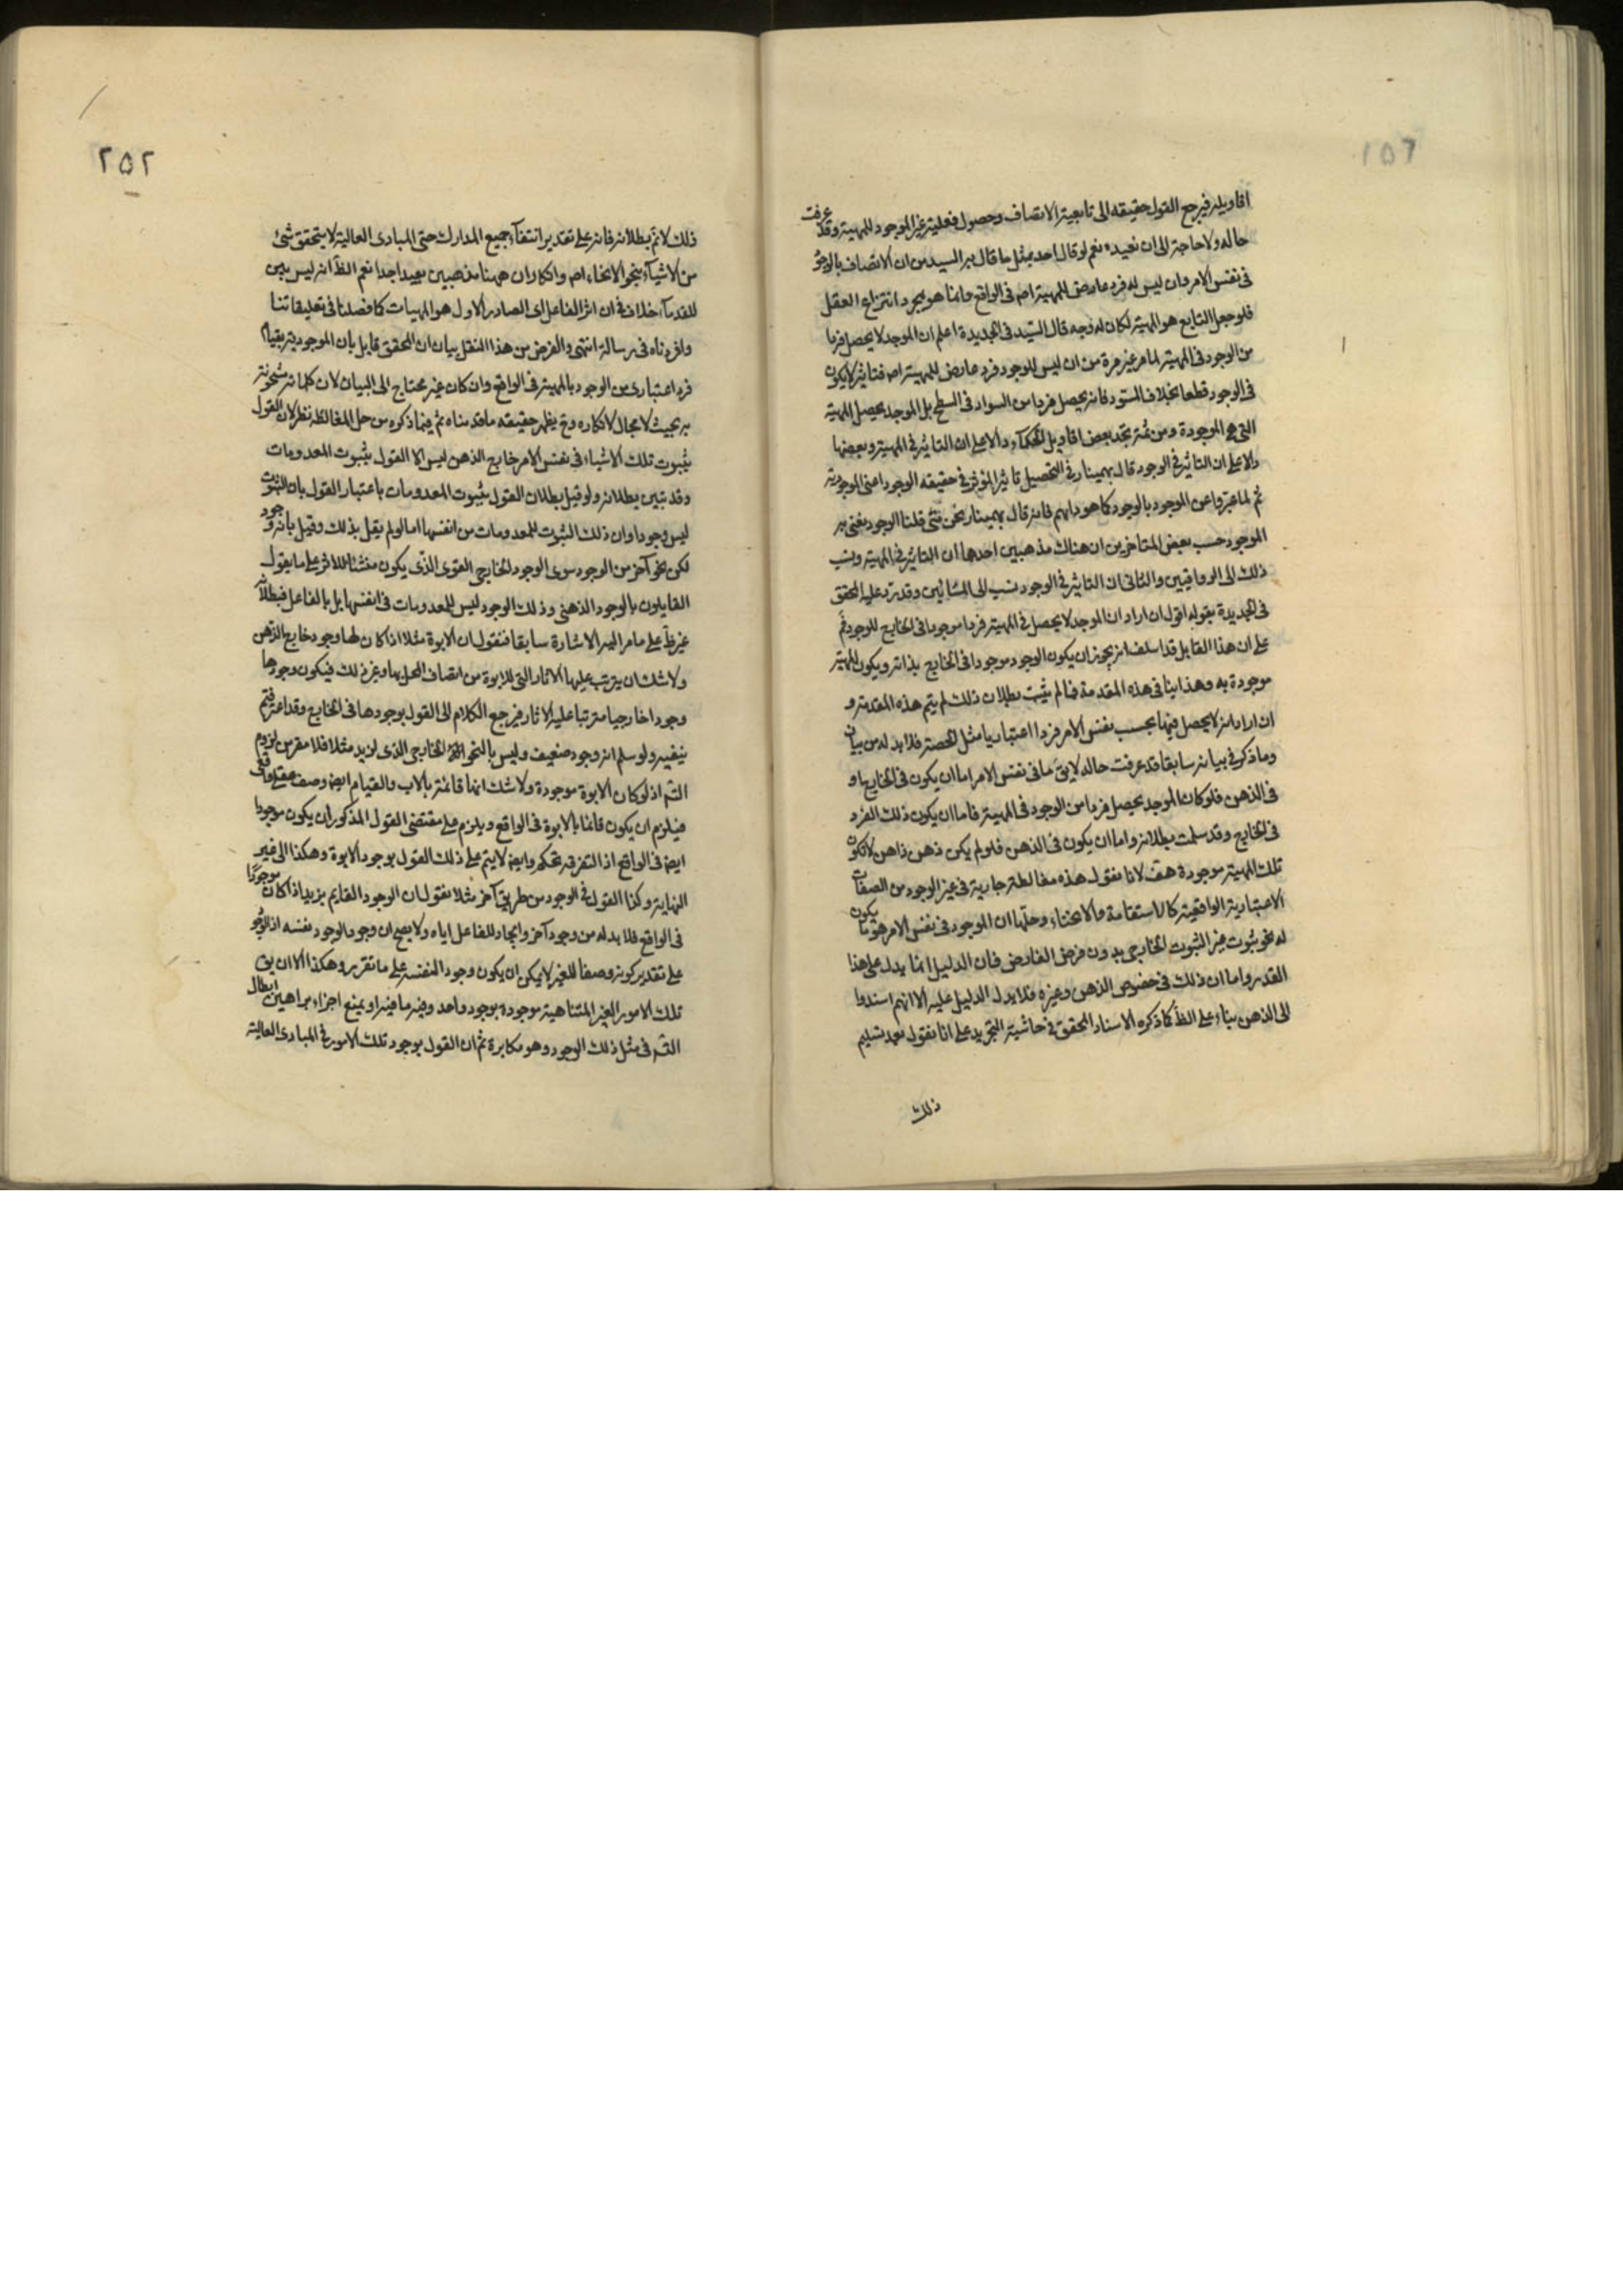 ١٥٦
اقاويله فيرجع القول حقيقه الى تابعية الاتصاف وحصول فعلية غير الموجود للمهية وقد عرفت
حاله ولا حاجة الى ان نعيده نعم لو قال احد بمثل ما قال به السيد من ان الاتصاف بالوجود
فى نفس الامر وان ليس له فرد عارض للمهية اصه فى الواقع وانما هو بمجرد انتزاع العقل
فلو جعل التابع هو المهية لكان له وجه قال السيد فى الجديدة اعلم ان الموجد لا يحصل فردا
من الوجود فى المهية لما مر غير مرة من ان ليس للوجود فرد عارض للمهية اصه فتاثيره لا يكون
فى الوجود قطعا بخلاف المسود فانه يحصل فردا من السواد فى السطح بل الموجد يحصل المهية
التى هى الموجودة ومن ثمه تجد بعض اقاويل الحكماء دالا على ان التاثير فى المهية وبعضها
دالا على ان التاثير فى الوجود قال بهمينار فى التحصيل تاثير المؤثر فى حقيقه الوجود اعنى الموجودية
ثم لما عبروا عن الموجود بالوجود كما هو دابهم فانه قال بهمينار نحن متى قلنا الوجود نعنى به
الموجود حسب بعض المتاخرين ان هناك مذهبين احدهما ان التاثير فى المهية ونسب
ذلك الى الرواقيين والثانى ان التاثير فى الوجود نسب الى المشائين وقد رد عليه المحقق
فى الجديدة بقوله اقول ان اراد ان الموجد لا يحصل فى المهية فردا موجودا فى الخارج للوجود ثم
على ان هذا القايل قد اسلف انه يجوز ان يكون الوجود موجودا فى الخارج بذاته ويكون المهية
موجودة به وهذا ينافى هذه المقدمة فما لم يثبت بطلان ذلك لم يتم هذه المقدمة و
ان اراد انه لا يحصل فيها بحسب نفس الامر فردا اعتباريا مثل الحصة فلا بد له من بيان
وما ذكره فى بيانه سابقا قد عرفت حاله لا يق ما فى نفس الامر اما ان يكون فى الخارج او
فى الذهن فلو كان الموجد يحصل فردا من الوجود فى المهية فاما ان يكون ذلك الفرد
فى الخارج وقد سلمت بطلانه واما ان يكون فى الذهن فلو لم يكن ذهن ذاهن لا تكون
تلك المهية موجودة هف لانا نقول هذه مغالطة جارية فى غير الوجود من الصفات
الاعتبارية الواقعية كالاستقامة والانحناء وحلها ان الموجود فى نفس الامر هو ما يكون
له نحو ثبوت غير الثبوت الخارجى بدون فرض الفارض فان الدليل انما يدل على هذا
القدر واما ان ذلك فى خصوص الذهن وغيره فلا يدل الدليل عليه الا انهم اسندوا
الى الذهن بناء على الظ كما ذكره الاستاد المحقق فى حاشية التجريد على انا نقول بعد تسليم
ذلك
٢٥٢
ذلك لا نم بطلانه فانه على تقدير انتفاء جميع المدارك حتى المبادى العالية لا يتحقق شئ
من الاشياء بنحو الانحاء اصه وانكار ان ههنا مذهبين بعيد اجدا نعم الظ انه ليس بين
القدماء خلاف فى ان اثر الفاعل اى الصادر الاول هو المهيات كما فصلنا فى تعليقاتنا
وافردناه فى رسالة انتهى والغرض من هذا النقل بيان ان المحقق قايل بان الموجودية بقيام
فرد اعتبارى من الوجود بالمهية فى الواقع وان كان غير محتاج الى البيان لان كلماته مشحونة
به بحيث لا مجال لانكاره وح يظهر حقيقه ما قدمناه ثم فيما ذكره من حل المغالطه نظر لان القول
بثبوت تلك الاشياء فى نفس الامر خارج الذهن ليس الا القول بثبوت المعدومات
وقد تبين بطلانه ولو قيل بطلان القول بثبوت المعدومات باعتبار القول بان الثبوت
ليس وجودا وان ذلك الثبوت للمعدومات من انفسها اما لو لم يقل بذلك وقيل بانه وجود
لكن نحو آخر من الوجود سوى الوجود الخارجى القوى الذى يكون منشئا للاثر على ما يقول
القايلون بالوجود الذهنى وذلك الوجود ليس للمعدومات فى انفسها بل بالفاعل فبطلانه
غير ظ على ما مر اليه الاشارة سابقا فنقول ان الابوة مثلا اذا كان لها وجود خارج الذهن
ولا شك ان يترتب عليها الاثار التى للابوة من اتصاف المحل بها وغير ذلك فيكون وجودها
وجودا خارجيا مترتبا عليه الاثار فيرجع الكلام الى القول بوجودها فى الخارج وقد اعترفتم
بنفيه ولو سلم انه وجود ضعيف وليس بالنحو الخارجى الذى لزيد مثلا فلا مفر من لزوم
التسه اذ لو كان الابوة موجودة ولا شك انها قائمة بالاب والقيام ايض وصف عقلى واقعى
فيلزم ان يكون قائما بالابوة فى الواقع ويلزم على مقتضى القول المذكور ان يكون موجودا
ايض فى الواقع اذ التفرقه تحكم وايض لا يتم على ذلك القول بوجود الابوة وهكذا الى غير
النهاية وكذا القول فى الوجود من طريق آخر مثلا نقول ان الوجود القايم بزيد اذا كان موجودا
فى الواقع فلا بد له من وجود آخر وايجاد للفاعل اياه ولا يصح ان وجود الوجود نفسه اذ الوجود
على تقدير كونه وصفا للغير لا يمكن ان يكون وجودا لنفسه على ما تقرر وهكذا الا ان يق
تلك الامور الغير المتناهية موجودة بوجود واحد وفيه ما فيه او يمنع اجراء براهين ابطال
التسه فى مثل ذلك الوجود وهو مكابرة ثم ان القول بوجود تلك الامور فى المبادى العالية